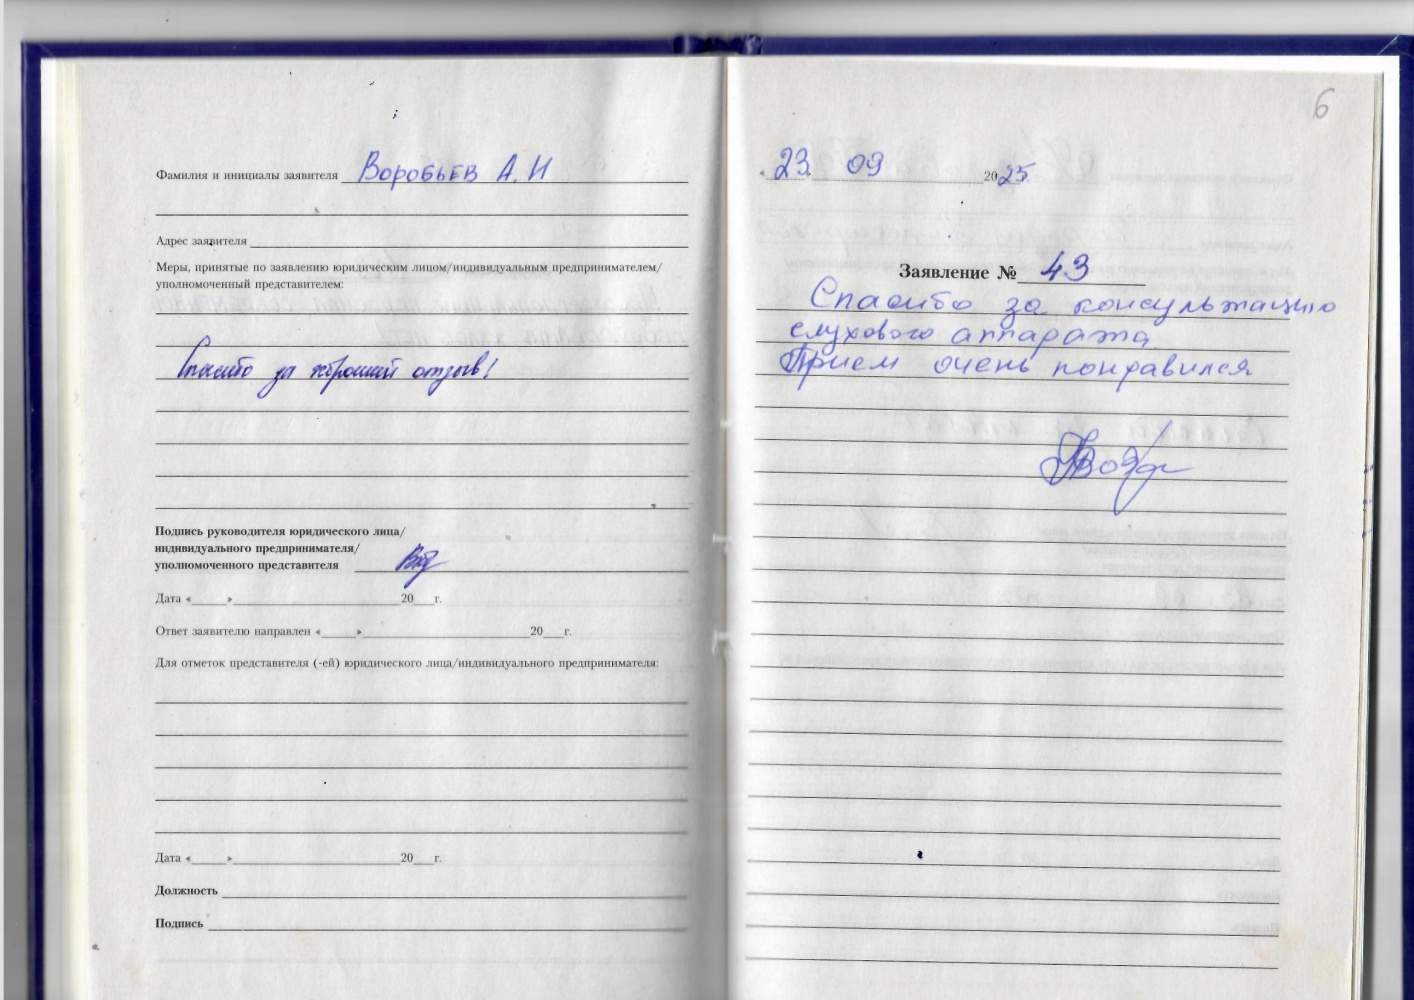 Фамилия и инициалы заявителя Воробьев А. И
Адрес заявителя
Меры, принятые по заявлению юридическим лицом/индивидуальным предпринимателем/
уполномоченный представителем:
Спасибо за хороший отзыв!
Подпись руководителя юридического лица/
индивидуального предпринимателя/
уполномоченного представителя
Дата «____»____20___г.
Ответ заявителю направлен «____»____20___г.
Для отметок представителя (-ей) юридического лица/индивидуального предпринимателя:
Дата «____»____20___г.
Должность
Подпись
6
« 23. 09 2025.
Заявление № 43
Спасибо за консультацию
слухового аппарата
Прием очень понравился